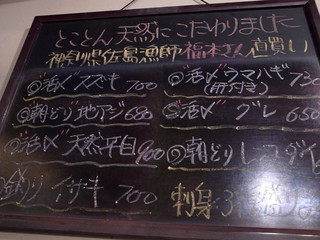 とことん天然にこだわりました
神奈川県佐島漁師 福本さん直買い
活〆 スズキ 700
朝どり 地アジ 680
活〆 天然平目 900
釣り イサキ 700
活〆 ウマハギ 750
(肝付き)
活〆 グレ 650
朝どり レンコダイ
刺身 3種盛り